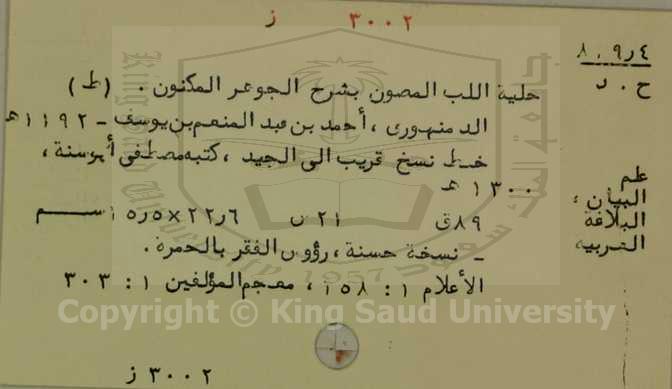 ٣٠٠٢ ز
٨٠٩ر٤
ح . د
حلية اللب المصون بشرح الجوهر المكنون . (ط)
الدمنهورى ، أحمد بن عبد المنعم بن يوسف - ١١٩٢ هـ
خط نسخ قريب الى الجيد ، كتبه مصطفى أبوسنة ،
١٣٠٠ هـ
علم
البيان ،
البلاغة
العربية
٨٩ق ٢١ س ٢٢٫٦×١٥٫٥ سم
- نسخة حسنة ، رؤوس الفقر بالحمرة .
الأعلام ١ : ١٥٨ ، معجم المؤلفين ١ : ٣٠٣
1957
Copyright © King Saud University
٣٠٠٢ ز